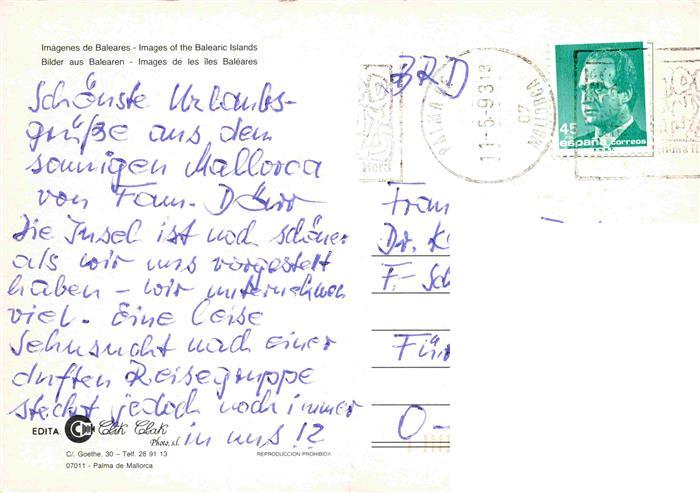 Imágenes de Baleares - Images of the Balearic Islands
Bilder aus Balearen - Images de les îles Baléares
Schönste Urlaubs-
grüße aus dem
sonnigen Mallorca
von Fam. Dürr
Die Insel ist noch schöner
als wir uns vorgestellt
haben - wir unternehmen
viel. Eine leise
Sehnsucht nach einer
duften Reisegruppe
steckt jedoch noch immer
in uns !?
EDITA Clik Clak
Photo, s.l.
C/. Goethe, 30 - Telf. 28 91 13
07011 - Palma de Mallorca
REPRODUCCION PROHIBIDA
BRD
PALMA
MALLORCA
11-5-93
07
45
españa correos
Fram
Dr. K
F.- Sch
Für
O-